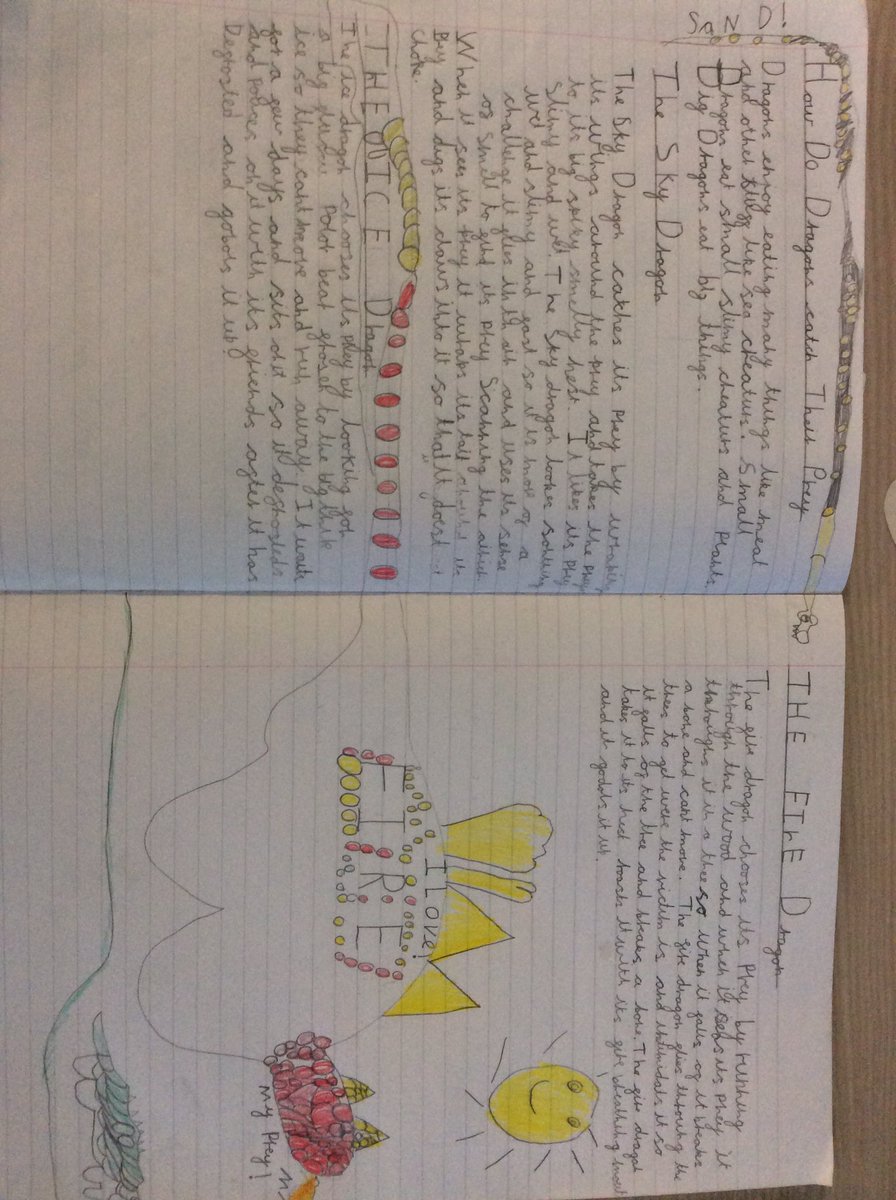 SAND!
How Do Dragons catch Their Prey
Dragons enjoy eating many things like meat
and other things like sea creaturs. Small
Dragons eat small slimy cheaturs and Plants.
Big Dragons eat big things.
The Sky Dragon
The Sky Dragon catches its Prey by wraking
its wings around the Prey and takes the Prey
to its big spiky smelly nest. It likes its Prey
slimy and wet. The Sky dragon looks somthing
wet and slimy and fast so it is more of a
challenge it flies with air and uses its sense
of smell to find its Prey Scanning the
When it sees its Prey it wraks its tail around its
Prey and digs its claws into it so that it doesnt
choke.
THE ICE Dragon
The ice dragon chooses its Prey by looking for
a big Polor bear frosel to the big thik
ice so they cant move and run away. It waits
for a few days and sits on it so it defrosteds
and Pounes on it with its friends after it has
Degrosted and gobols it up!
THE FIrE Dragon
The fire dragon chooses its Prey by running
through the wood and when it sees its Prey it
throughs it in a tree so when it falls of it breaks
a bone and cant move. The fire dragon flies throuing the
trees to get were the victim is and intimidats it so
it falls of the tree and breaks a bone. The fire dragon
takes it to its nest roasts it with its fire breathing
and it gobbls it up.
I Love!
FIRE
my Prey!